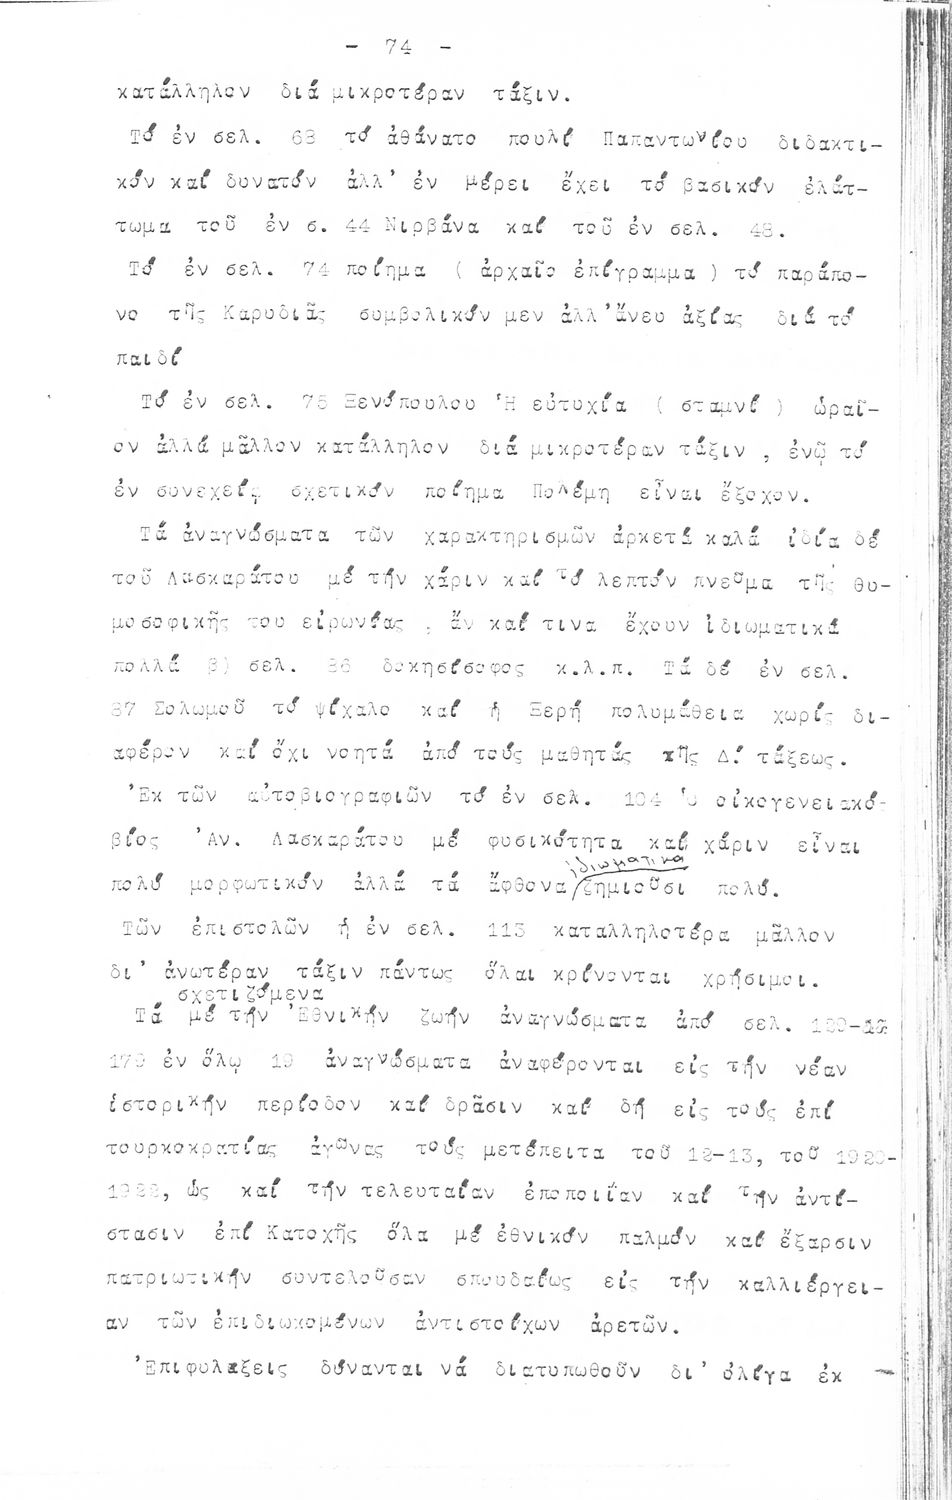 - 74 -
κατάλληλον διά μικροτέραν τάξιν.
Τό ἐν σελ. 68 τό ἀθάνατο πουλί Παπαντωνίου διδακτι-
κόν καί δυνατόν ἀλλ' ἐν μέρει ἔχει τό βασικόν ἐλάτ-
τωμα τοῦ ἐν σ. 44 Νιρβάνα καί τοῦ ἐν σελ. 48.
Τό ἐν σελ. 74 ποίημα ( ἀρχαῖο ἐπίγραμμα ) τό παράπο-
νο τῆς Καρυδιᾶς συμβολικόν μεν ἀλλ'ἄνευ ἀξίας διά τό
παιδί
Τό ἐν σελ. 75 Ξενόπουλου Ἡ εὐτυχία ( σταμνί ) ὡραῖ-
ον ἀλλά μᾶλλον κατάλληλον διά μικροτέραν τάξιν , ἐνῷ τό
ἐν συνεχείᾳ σχετικόν ποίημα Πολέμη εἶναι ἔξοχον.
Τά ἀναγνώσματα τῶν χαρακτηρισμῶν ἀρκετά καλά ἰδία δέ
τοῦ Λασκαράτου μέ τήν χάριν καί τό λεπτόν πνεῦμα τῆς θυ-
μοσοφικῆς του εἰρωνίας , ἄν καί τινα ἔχουν ἰδιωματικά
πολλά β) σελ. 86 δοκησίσοφος κ.λ.π. Τά δέ ἐν σελ.
87 Σολωμοῦ τό ψίχαλο καί ἡ Ξερή πολυμάθεια χωρίς δι-
αφέρον καί ὄχι νοητά ἀπό τούς μαθητάς τῆς Δ! τάξεως.
Ἐκ τῶν αὐτοβιογραφιῶν τό ἐν σελ. 104 Ὁ οἰκογενειακό-
βίος Ἀν. Λασκαράτου μέ φυσικότητα καί χάριν εἶναι
πολύ μορφωτικόν ἀλλά τά ἄφθονα ἰδιωματικα ζημιοῦσι πολύ.
Τῶν ἐπιστολῶν ἡ ἐν σελ. 113 καταλληλοτέρα μᾶλλον
δι' ἀνωτέραν τάξιν πάντως ὅλαι κρίνονται χρήσιμοι.
σχετιζόμενα
Τά μέ τήν Ἐθνικήν ζωήν ἀναγνώσματα ἀπό σελ.
179 ἐν ὅλῳ 19 ἀναγνώσματα ἀναφέρονται εἰς τήν νέαν
ἱστορικήν περίοδον καί δρᾶσιν καί δή εἰς τούς ἐπί
τουρκοκρατίας ἀγῶνας τούς μετέπειτα τοῦ 12-13, τοῦ 1920-
1922, ὡς καί τήν τελευταίαν ἐποποιΐαν καί τήν ἀντί-
στασιν ἐπί Κατοχῆς ὅλα μέ ἐθνικόν παλμόν καί ἔξαρσιν
πατριωτικήν συντελοῦσαν σπουδαίως εἰς τήν καλλιέργει-
αν τῶν ἐπιδιωκομένων ἀντιστοίχων ἀρετῶν.
Ἐπιφυλαξεις δύνανται νά διατυπωθοῦν δι' ὀλίγα ἐκ